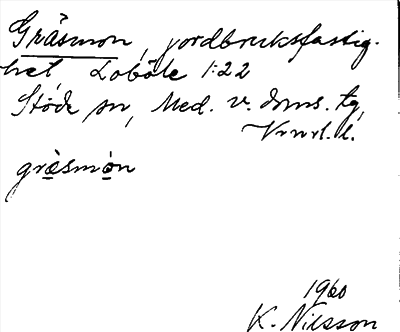 Gräsmon, jordbruksfastig-
het, Loböle 1:22
Stöde sn, Med. v. doms. tg,
Vrnrl. l.
gräsmòn
1960
K. Nilsson